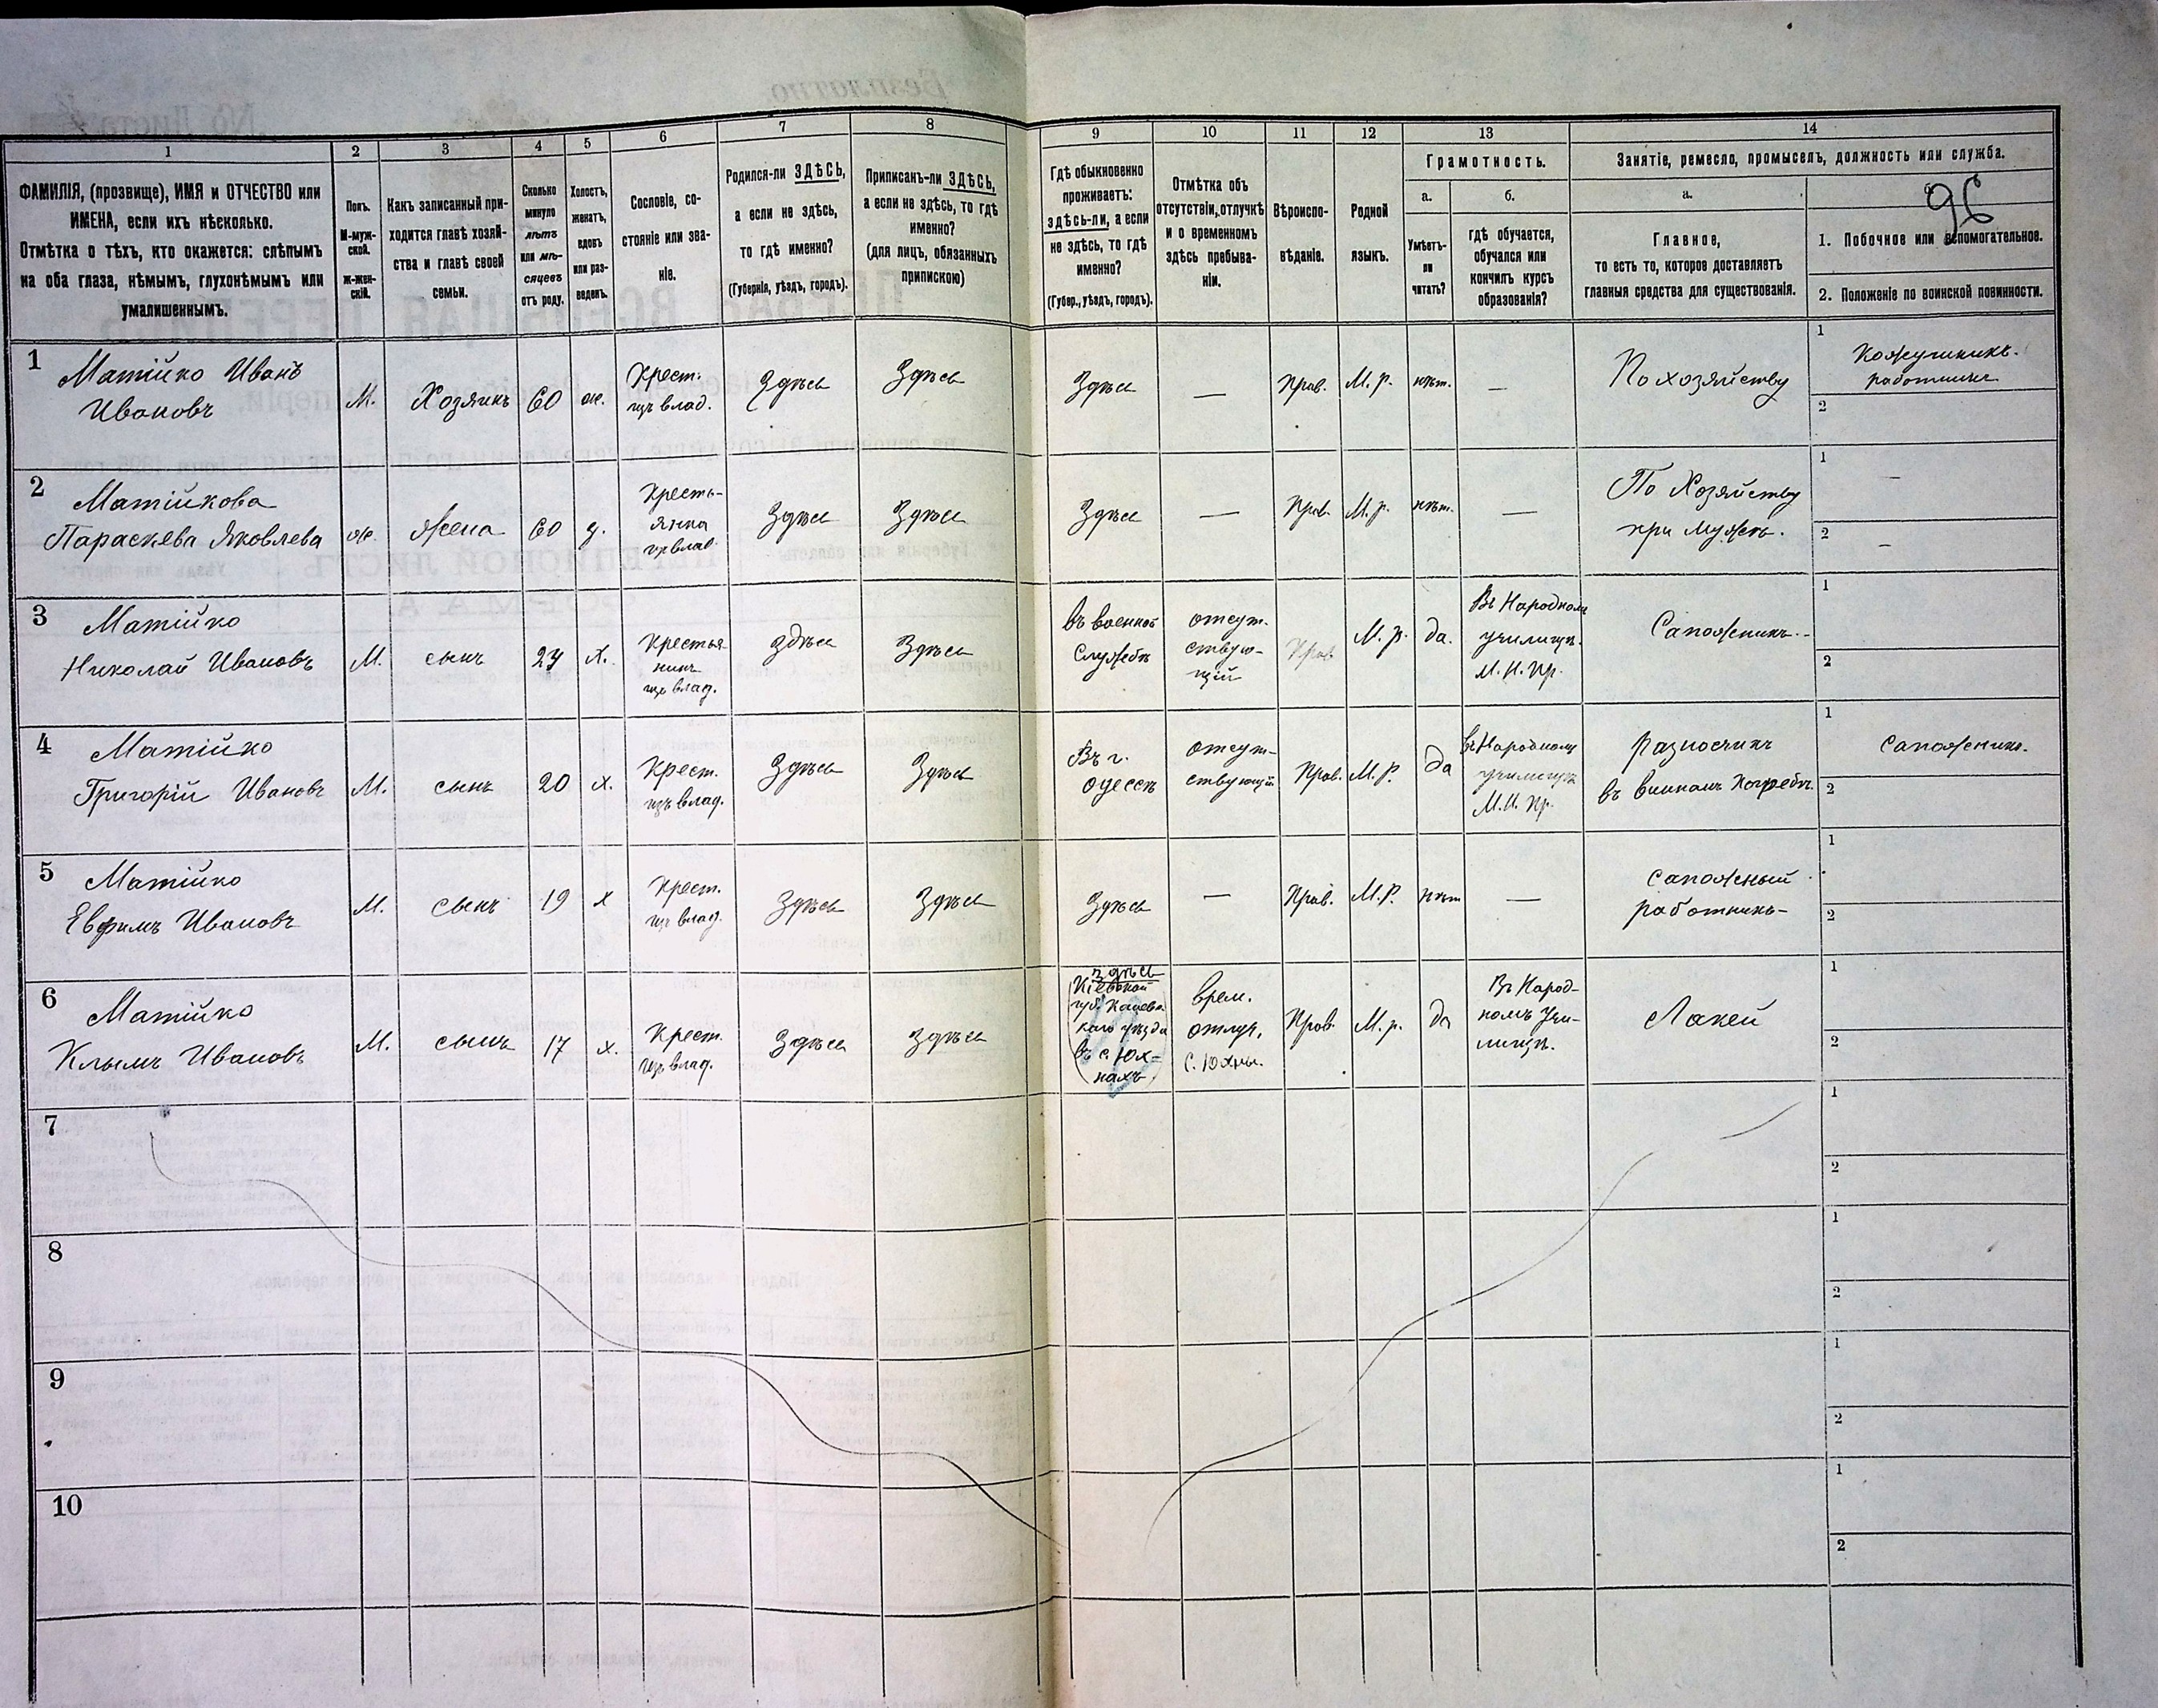 96
1
2
3
4
5
6
7
8
9
10
11
12
13
14
ФАМИЛІЯ, (прозвище), ИМЯ и ОТЧЕСТВО или
ИМЕНА, если ихъ нѣсколько.
Отмѣтка о тѣхъ, кто окажется: слѣпымъ
на оба глаза, нѣмымъ, глухонѣмымъ или
умалишеннымъ.
Полъ.
М-муж-
ской.
ж-жен-
скій.
Какъ записанный при-
ходится главѣ хозяй-
ства и главѣ своей
семьи.
Сколько
минуло
лѣтъ
или мѣ-
сяцевъ
отъ роду.
Холостъ,
женатъ,
вдовъ
или раз-
веденъ.
Сословіе, со-
стояніе или зва-
ніе.
Родился-ли ЗДѢСЬ,
а если не здѣсь,
то гдѣ именно?
(Губернія, уѣздъ, городъ).
Приписанъ-ли ЗДѢСЬ,
а если не здѣсь, то гдѣ
именно?
(для лицъ, обязанныхъ
припискою)
Гдѣ обыкновенно
проживаетъ:
здѣсь-ли, а если
не здѣсь, то гдѣ
именно?
(Губер., уѣздъ, городъ).
Отмѣтка объ
отсутствіи, отлучкѣ
и о временномъ
здѣсь пребыва-
ніи.
Вѣроиспо-
вѣданіе.
Родной
языкъ.
Грамотность.
а.
Умѣетъ-
ли
читать?
б.
гдѣ обучается,
обучался или
кончилъ курсъ
образованія?
Занятіе, ремесло, промыселъ, должность или служба.
а.
Главное,
то есть то, которое доставляетъ
главныя средства для существованія.
1. Побочное или вспомогательное.
2. Положеніе по воинской повинности.
1
Матійко Иванъ
Ивановъ
М.
Хозяинъ
60
ж.
Крест.
изъ влад.
Здѣсь
Здѣсь
Здѣсь
—
Прав.
М. р.
нѣтъ.
—
По хозяйству
1
Кожушникъ.
работникъ
2
2
Матійкова
Параскева Яковлева
ж.
Жена
60
з.
Кресть-
янка
изъ влад.
Здѣсь
Здѣсь
Здѣсь
—
Прав.
М. р.
нѣтъ.
—
По Хозяйству
при Мужѣ.
1
—
2
—
3
Матійко
Николай Ивановъ
М.
сынъ
27
х.
Крестья-
нинъ
изъ влад.
Здѣсь
Здѣсь
въ военной
Службѣ
отсут-
ствую-
щій
Прав
М. р.
да.
Въ Народномъ
училищѣ.
М. Н. Пр.
Сапожникъ.
1
2
4
Матійко
Григорій Ивановъ
М.
сынъ
20
х.
Крест.
изъ влад.
Здѣсь
Здѣсь
Въ г.
Одессѣ
отсут-
ствующій
Прав.
М. Р.
да
въ Народному
училищѣ
М. Н. Пр.
разносчикъ
въ винномъ Погребѣ.
1
Сапожникъ.
2
5
Матійко
Евфимъ Ивановъ
М.
сынъ
19
х
Крест.
изъ влад.
Здѣсь
Здѣсь
Здѣсь
—
Прав.
М. Р.
нѣтъ
—
сапожный
работникъ
1
2
6
Матійко
Климъ Ивановъ
М.
сынъ
17
х.
Крест.
изъ влад.
Здѣсь
Здѣсь
здѣсь
Кіевской
губ. Каневс-
каго уѣзда
въ с. Юх-
нахъ
врем.
отлуч.
С. Юхны.
Прав.
М. р.
да
Въ Народ-
номъ Учи-
лищѣ.
Лакей
1
2
7
1
2
8
1
2
9
1
2
10
1
2